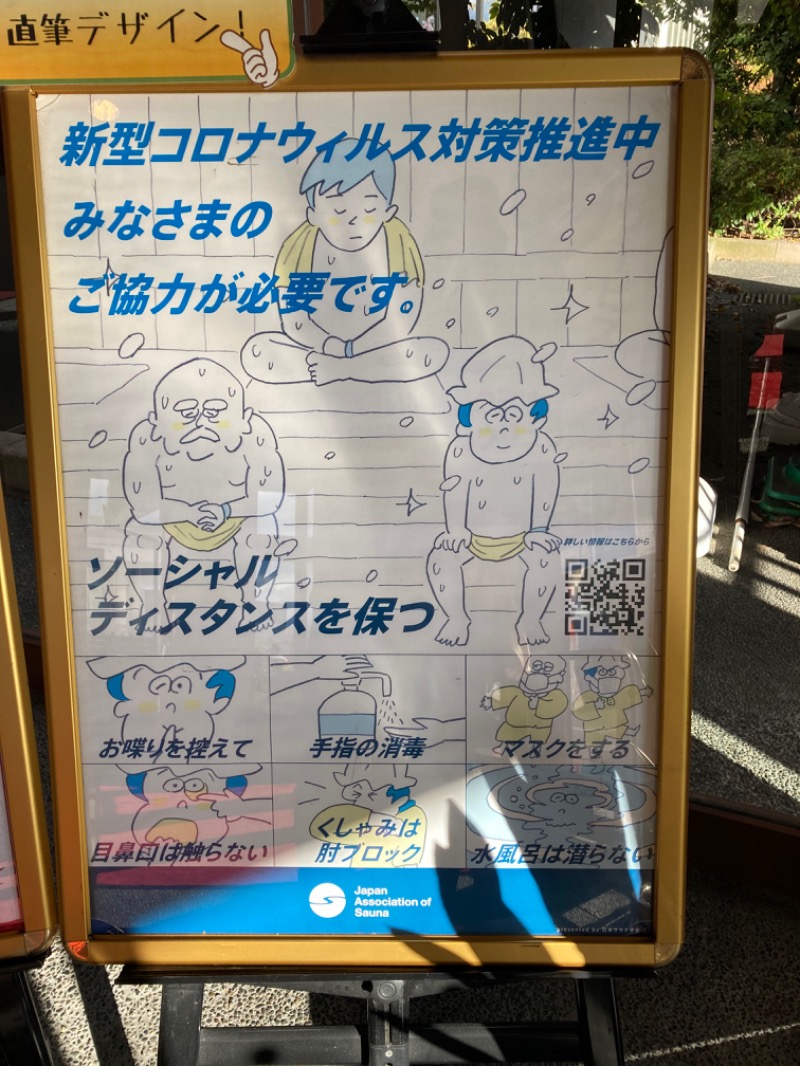 直筆デザイン!
新型コロナウィルス対策推進中
みなさまの
ご協力が必要です。
詳しい情報はこちらから
ソーシャル
ディスタンスを保つ
お喋りを控えて
手指の消毒
マスクをする
目鼻口は触らない
くしゃみは
肘ブロック
水風呂は潜らない
Japan
Association of
Sauna
presented by